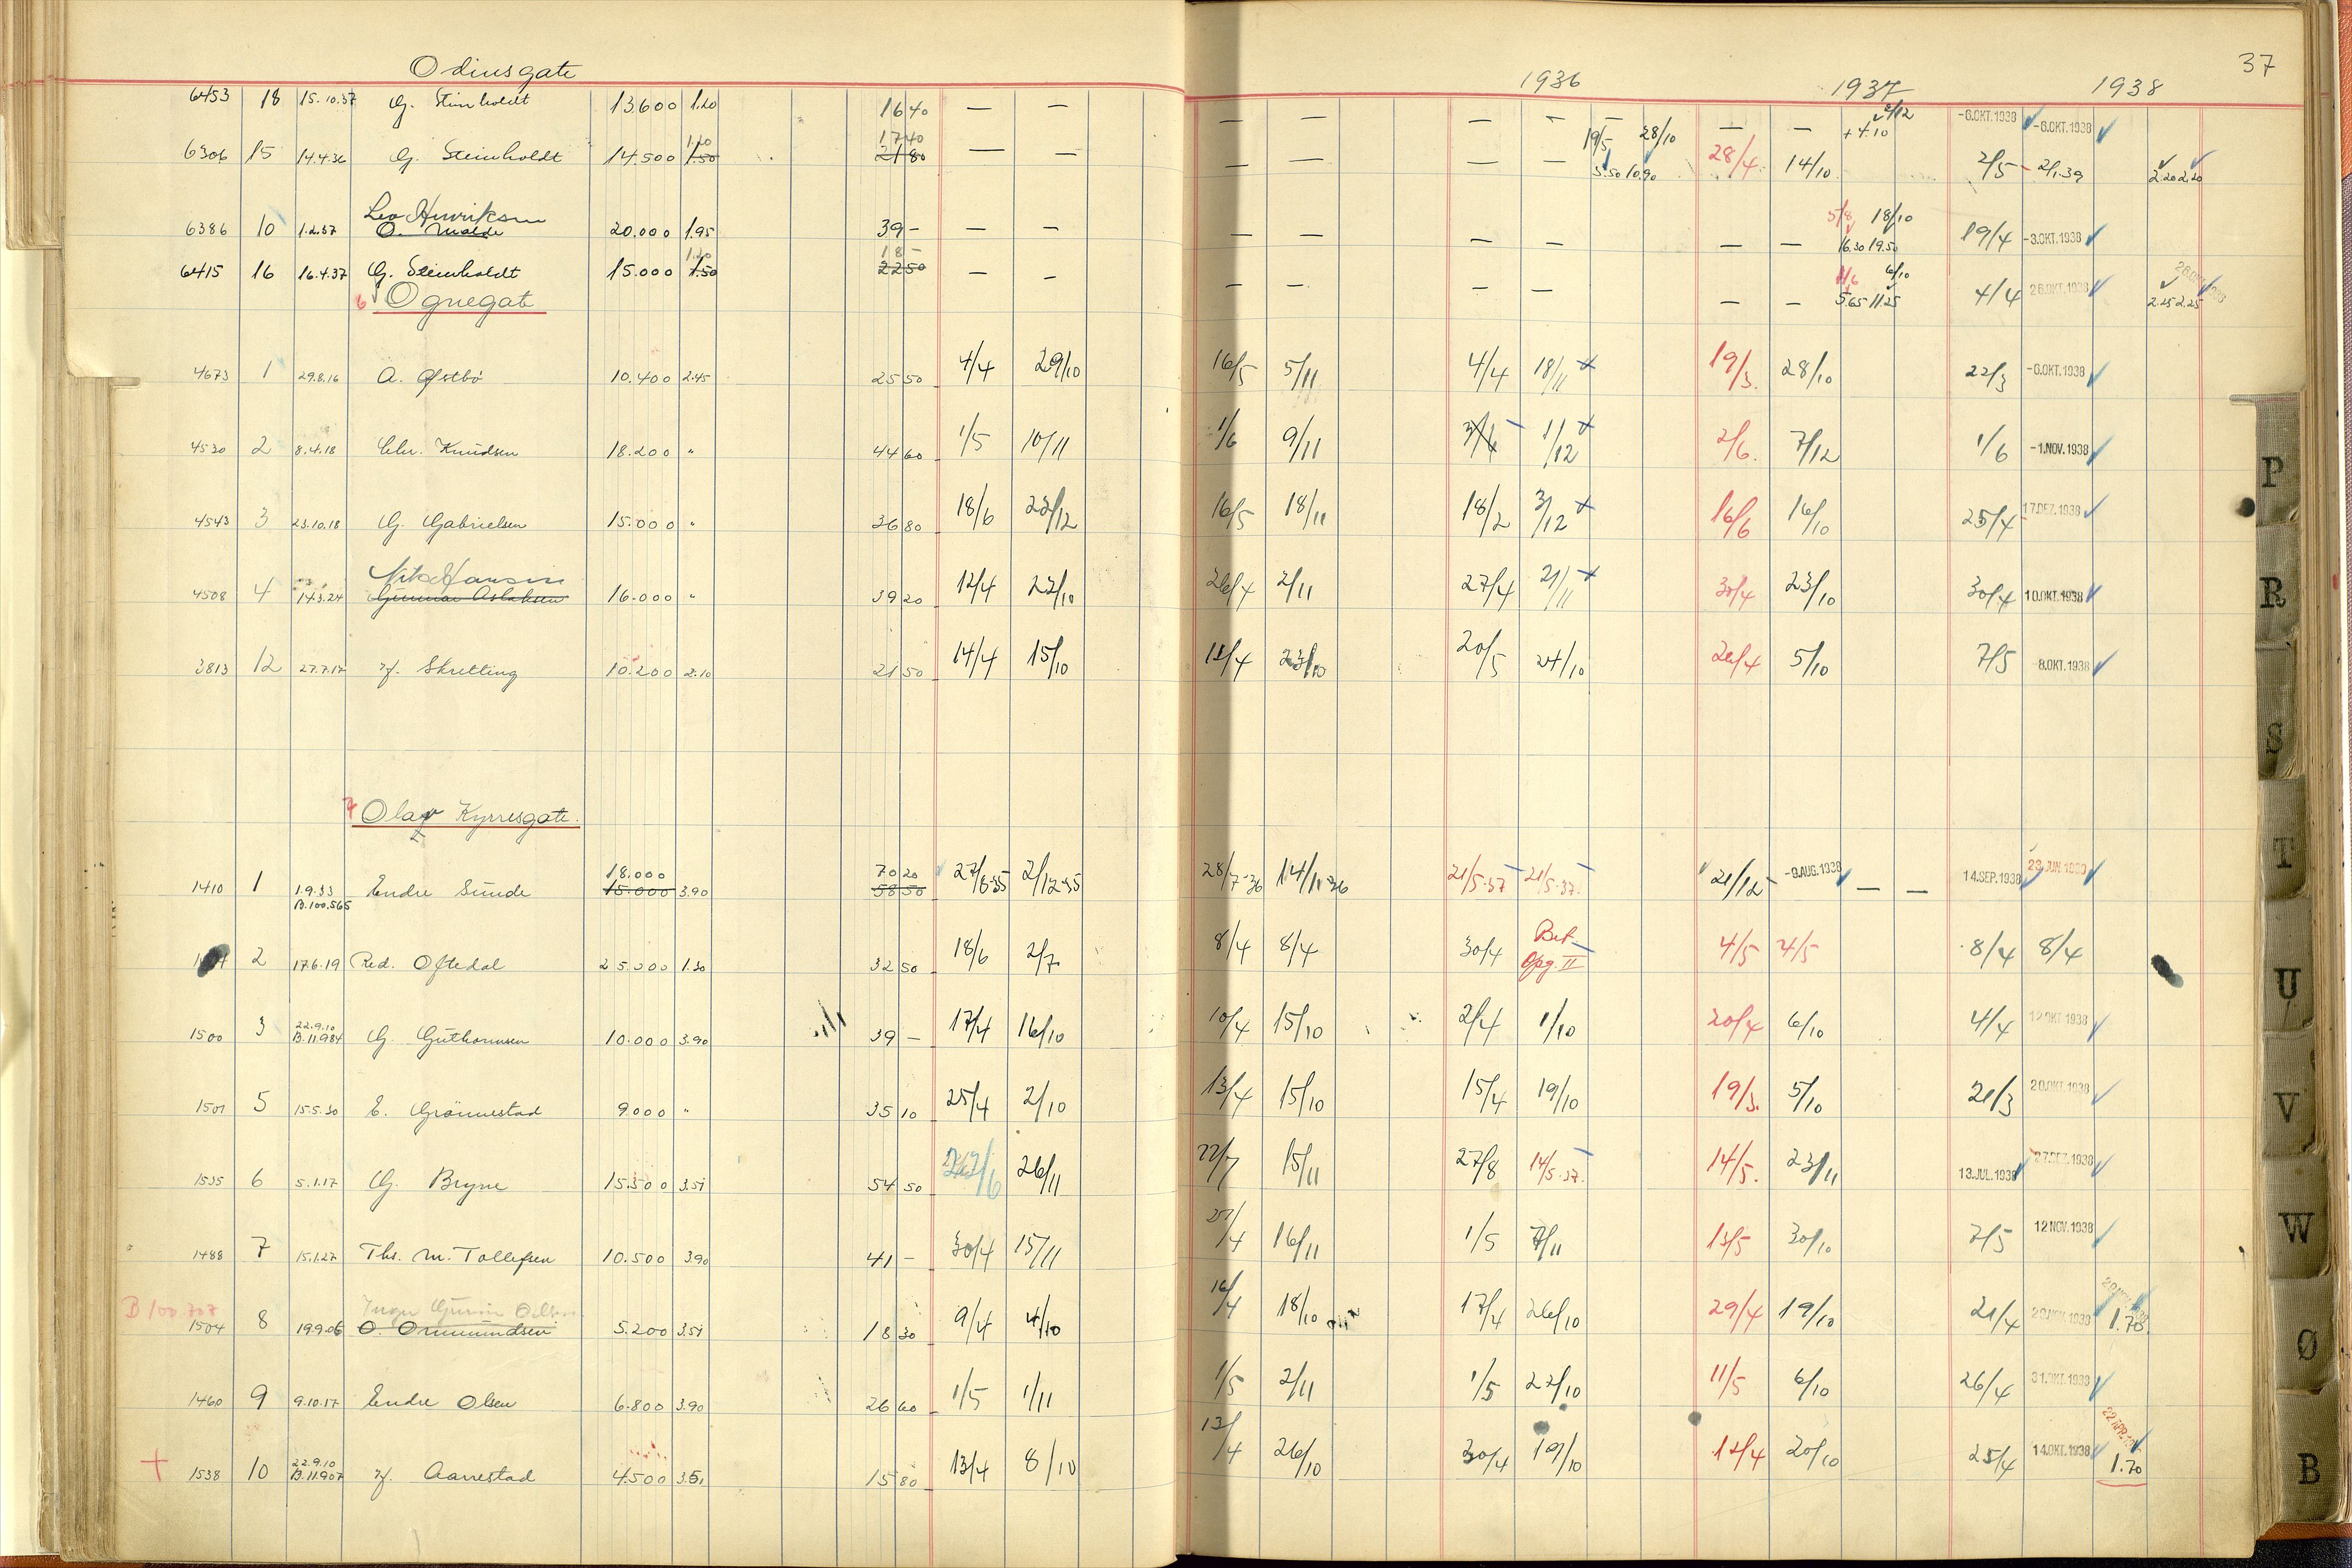 37
Odinsgate 1936 1937 1938
6453 18 15.10.37 G. Steinholdt 13600 1.20 16 40 — — — — — — — — — + 4.10 2/12 -6.OKT.1938 -6.OKT.1938
6306 15 14.4.36 G. Steinholdt 14.500 1.20 1.50 17 40 21 80 — — — — — — 19/5 28/10 5.50 10.90 28/4 14/10 2/5 - 2/1.39 2.20 2.20
6386 10 1.2.37 Leo Henriksen O. Malde 20.000 1.95 39 - — — — — — — — — 5/8 18/10 16.30 19.50 19/4 -3.OKT.1938
6415 16 16.4.37 G. Steinholdt 15.000 1.20 1.50 18 - 22 50 — — — — — — — — 11/6 6/10 5.65 11.25 4/4 26.OKT.1938 2.25 2.25
6 Ognegate
4673 1 29.8.16 A. Østbö 10.400 2.45 25 50 4/4 29/10 16/5 5/11 4/4 18/11 19/3. 28/10 22/3 -6.OKT.1938
4530 2 8.4.18 Chr. Knudsen 18.200 " 44 60 1/5 10/11 1/6 9/11 3/6 1/12 2/6. 7/12 1/6 -1.NOV.1938
4543 3 23.10.18 G. Gabrielsen 15.000 " 36 80 18/6 23/12 16/5 18/11 18/2 3/12 16/6 16/10 25/4 17.DEZ.1938
4508 4 14.3.24 Hansen Gunnar Aslaksen 16.000 " 39 20 12/4 23/10 26/4 2/11 27/4 2/11 30/4 23/10 30/4 10.OKT.1938
3813 12 27.7.17 Skretting 10.200 2.10 21 50 14/4 15/10 12/4 23/10 20/5 24/10 26/4 5/10 7/5 -8.OKT.1938
7 Olav Kyrresgate.
1410 1 1.9.33 B.100.565 Endre Sunde 18.000 15.000 3.90 70 20 58 50 27/8-35 2/12-35 28/7-36 14/11-36 21/5-37 21/5-37. 21/12 -9.AUG.1938 — — 14.SEP.1938
2 17.6.19 Red. Oftedal 25.000 1.30 32 50 18/6 2/7 8/4 8/4 30/4 Bet. Opg. II 4/5 4/5 8/4 8/4
1500 3 22.9.10 B.11.984 G. Guthormsen 10.000 3.90 39 - 17/4 16/10 10/4 15/10 2/4 1/10 20/4 6/10 4/4 12.OKT.1938
1501 5 15.5.30 E. Grönnestad 9.000 " 35 10 25/4 2/10 13/4 15/10 15/4 19/10 19/3. 5/10 21/3 20.OKT.1938
1535 6 5.1.17 G. Bryne 15.500 3.51 54 50 26/11 22/7 15/11 27/8 14/5-37. 14/5. 23/11 13.JUL.1938 27.DEZ.1938
1488 7 15.1.27 Ths. M. Tollefsen 10.500 3.90 41 - 30/4 15/11 27/4 16/11 1/5 7/11 13/5 30/10 7/5 12 NOV.1938
B 100.707
1504 8 19.9.06 O. Ommundsen 5.200 3.51 18 30 9/4 4/10 16/4 18/10 17/4 26/10 29/4 19/10 21/4 29.NOV.1938 1.70
1460 9 9.10.17 Endre Olsen 6.800 3.90 26 60 1/5 1/11 1/5 2/11 1/5 22/10 11/5 6/10 26/4 31.OKT.1938
+ 1538 10 22.9.10 B.11.907 Aarrestad 4.500 3.51 15 80 13/4 8/10 13/4 26/10 30/4 19/10 12/4 20/10 25/4 14.OKT.1938 1.70
P
R
S
T
U
V
W
Ø
B